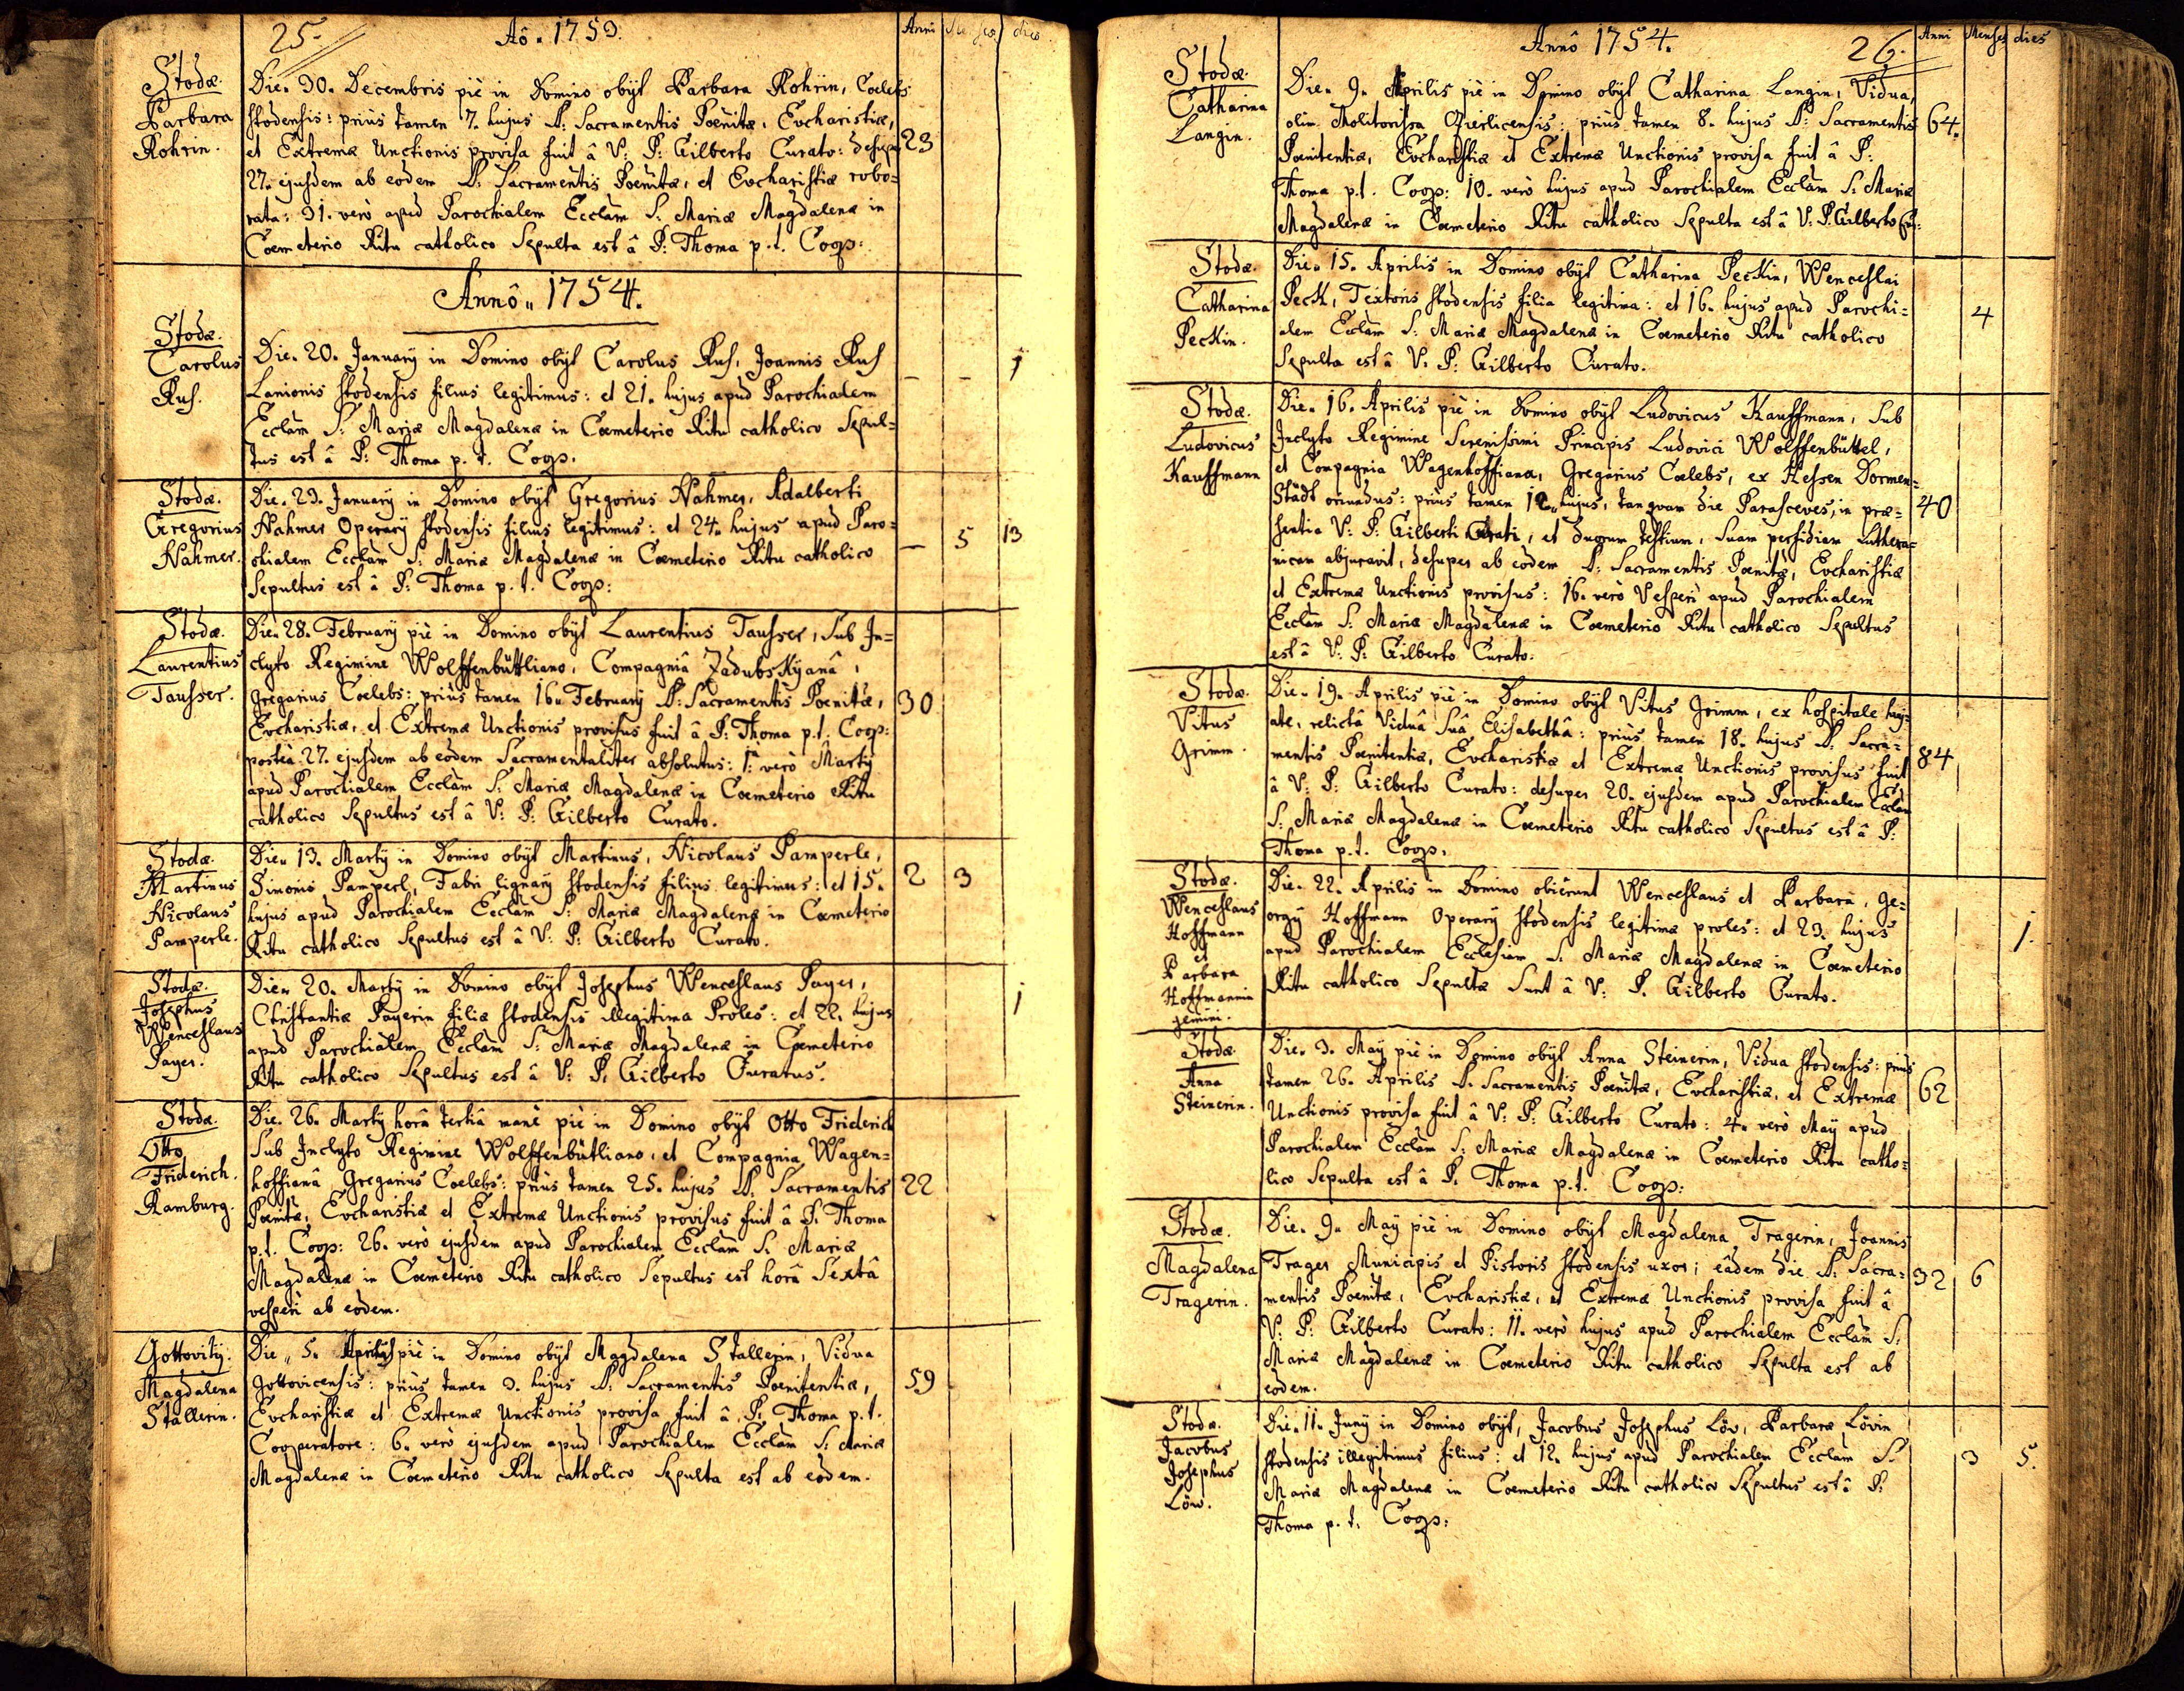 25.
Aô. 1753.
Anni Menses dies
Stodæ.
Barbara
Rohrin.
Die. 30. Decembris piè in Domino obijt Barbara Rohrin, Coelebs
Stodensis: priùs tamen 7. hujus SS: Sacramentis Poenitæ, Eucharistiæ,
et Extremæ Unctionis provisa fuit â V: P: Gilberto Curato: desuper
27. ejusdem ab eodem SS: Sacramentis Poenitæ, et Eucharistiæ robo=
rata: 31. verò apud Parochialem Ecclam S: Mariæ Magdalenæ in
Coemeterio Ritu catholico Sepulta est â P: Thoma p. t. Coop:
23
Annô„ 1754.
Stodæ.
Carolus
Rus.
Die. 20. Januarÿ in Domino obijt Carolus Rus, Joannis Rus
Lanionis Stodensis filius legitimus: et 21. hujus apud Parochialem
Ecclam S: Mariæ Magdalenæ in Coemeterio Ritu catholico Sepul=
tus est â P: Thoma p. t. Coop.
– – 1
Stodæ.
Gregorius
Nahmer.
Die. 23. Januarÿ in Domino obijt Gregorius Nahmer, Adalberti
Nahmer Operarÿ Stodensis filius legitimus: et 24. hujus apud Paro=
chialem Ecclam S: Mariæ Magdalenæ in Coemeterio Ritu catholico
Sepultus est â P: Thoma p. t. Coop:
– 5 13
Stodæ.
Laurentius
Tausser.
Die. 28. Februarÿ piè in Domino obijt Laurentius Tausser, Sub In=
clyto Regimine Wolffenbüttliano, Compagniâ Zadubskÿanâ,
Gregarius Coelebs: priùs tamen 16. Februarÿ SS: Sacramentis Poenitæ,
Eucharistiæ, et Extremæ Unctionis provisus fuit â P: Thoma p.t. Coop:
posteà 27. ejusdem ab eodem Sacramentaliter absolutus: 1: verò Martÿ
apud Parochialem Ecclam S: Mariæ Magdalenæ in Coemeterio Ritu
catholico Sepultus est â V: P: Gilberto Curato.
30
Stodæ.
Martinus
Nicolaus
Pamperle.
Die. 13. Martÿ in Domino obijt Martinus, Nicolaus Pamperle,
Simonis Pamperl, Fabri lignarÿ Stodensis filius legitimus: et 15.
hujus apud Parochialem Ecclam S: Mariæ Magdalenæ in Coemeterio
Ritu catholico Sepultus est â V: P: Gilberto Curato.
2 3
Stodæ.
Josephus
Wenceslaus
Payer.
Die. 20. Martÿ in Domino obijt Josephus Wenceslaus Payer,
Christantiæ Payerin filiæ Stodensis illegitima Proles: et 22. hujus
apud Parochialem Ecclam S: Mariæ Magdalenæ in Coemeterio
Ritu catholico Sepultus est â V: P: Gilberto Curatus.
1
Stodæ.
Otto
Friderich.
Ramburg.
Die. 26. Martÿ horâ tertiâ manè piè in Domino obijt Otto Friderich
Sub Inclyto Regimine Wolffenbütliano, et Compagnia Wagen=
hoffianâ Gregarius Coelebs: priùs tamen 25. hujus SS: Sacramentis
Poenitæ, Eucharistiæ et Extremæ Unctionis provisus fuit â P: Thoma
p.t. Coop: 26. verò ejusdem apud Parochialem Ecclam S: Mariæ
Magdalenæ in Coemeterio Ritu catholico Sepultus est horâ Sextâ
vesperi ab eodem.
22
Gottovitÿ.
Magdalena
Stallerin.
Die„ 5. Aprilis piè in Domino obijt Magdalena Stallerin, Vidua
Gottovicensis: priùs tamen 3. hujus SS: Sacramentis Poenitentiæ,
Eucharistiæ et Extremæ Unctionis provisa fuit â P: Thoma p.t.
Cooperatore: 6. verò ejusdem apud Parochialem Ecclam S: Mariæ
Magdalenæ in Coemeterio Ritu catholico Sepulta est ab eodem.
59
Annô 1754.
26.
Anni Menses dies
Stodæ.
Catharina
Langin.
Die. 9. Aprilis piè in Domino obijt Catharina Langin, Vidua,
olim Molitorissa Querlicensis: priùs tamen 8. hujus SS: Sacramentis
Poenitentiæ, Eucharistiæ et Extremæ Unctionis provisa fuit â P:
Thoma p.t. Coop: 10. verò hujus apud Parochialem Ecclam S: Mariæ
Magdalenæ in Coemeterio Ritu catholico Sepulta est â V: P. Gilberto Cur:
64.
Stodæ.
Catharina
Peckin.
Die. 15. Aprilis in Domino obijt Catharina Peckin, Wenceslai
Peck, Textoris Stodensis filia legitima: et 16. hujus apud Parochi=
alem Ecclam S: Mariæ Magdalenæ in Coemeterio Ritu catholico
Sepulta est â V: P: Gilberto Curato.
4
Stodæ.
Ludovicus
Kauffmann
Die. 16. Aprilis piè in Domino obijt Ludovicus Kauffmann, Sub
Inclyto Regimine Serenissimi Principis Ludovici Wolffenbüttel,
et Compagnia Wagenhoffiana, Gregarius Coelebs, ex Hessen Dormen=
städt oriundus: priùs tamen 12. hujus, tanquam die Parasceves, in præ=
sentia V: P: Gilberti Curati, et duorum testium, Suam perfidiam Luthera=
nicam abjuravit, desuper ab eodem SS: Sacramentis Poenitæ, Eucharistiæ
et Extremæ Unctionis provisus: 16. verò Vesperi apud Parochialem
Ecclam S: Mariæ Magdalenæ in Coemeterio Ritu catholico Sepultus
est â V: P: Gilberto Curato.
40
Stodæ.
Vitus
Grimm.
Die. 19. Aprilis piè in Domino obijt Vitus Grimm, ex hospitale huj=
ate, relictâ Viduâ Suâ Elisabethâ: priùs tamen 18. hujus SS: Sacra=
mentis Poenitentiæ, Eucharistiæ et Extremæ Unctionis provisus fuit
â V: P: Gilberto Curato: desuper 20. ejusdem apud Parochialem Ecclam
S: Mariæ Magdalenæ in Coemeterio Ritu catholico Sepultus est â P:
Thoma p.t. Coop.
84
Stodæ.
Wenceslaus
Hoffmann
et
Barbara
Hoffmannin
gemini.
Die. 22. Aprilis in Domino obierunt Wenceslaus et Barbara, Ge=
orgÿ Hoffmann Operarÿ Stodensis legitimæ proles: et 23. hujus
apud Parochialem Ecclesiam S: Mariæ Magdalenæ in Coemeterio
Ritu catholico Sepultæ Sunt â V: P. Gilberto Curato.
1.
Stodæ.
Anna
Steinerin.
Die. 3. Maÿ piè in Domino obijt Anna Steinerin, Vidua Stodensis: priùs
tamen 26. Aprilis SS. Sacramentis Poenitæ, Eucharistiæ, et Extremæ
Unctionis provisa fuit â V: P: Gilberto Curato: 4. verò Maÿ apud
Parochialem Ecclam S: Mariæ Magdalenæ in Coemeterio Ritu catho=
lico Sepulta est â P: Thoma p.t. Coop:
62
Stodæ.
Magdalena
Tragerin.
Die. 9. Maÿ piè in Domino obijt Magdalena Tragerin, Joannis
Trager Municipis et Pistoris Stodensis uxor; eâdem die SS: Sacra=
mentis Poenitæ, Eucharistiæ, et Extremæ Unctionis provisa fuit â
V: P: Gilberto Curato: 11. verò hujus apud Parochialem Ecclam S:
Mariæ Magdalenæ in Coemeterio Ritu catholico Sepulta est ab
eodem.
32 6
Stodæ.
Jacobus
Josephus
Löw.
Die. 11. Junÿ in Domino obijt, Jacobus Josephus Löw, Barbaræ Lövin
Stodensis illegitimus filius: et 12. hujus apud Parochialem Ecclam S.
Mariæ Magdalenæ in Coemeterio Ritu catholico Sepultus est â P:
Thoma p. t. Coop:
3 5.